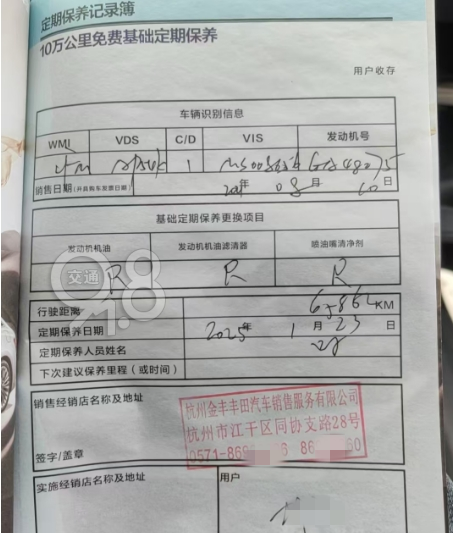 定期保养记录簿
10万公里免费基础定期保养
用户收存
车辆识别信息
WMI VDS C/D VIS 发动机号
LFM 1
销售日期(开具购车发票日期) 年 08月 10日
基础定期保养更换项目
发动机机油 发动机机油滤清器 喷油嘴清净剂
R R R
交通
91.8
行驶距离 KM
定期保养日期 2025年 1月 23日
28
定期保养人员姓名
下次建议保养里程（或时间）
销售经销店名称及地址
杭州金丰丰田汽车销售服务有限公司
杭州市江干区同协支路28号
0571-869 6 86 60
签字/盖章
实施经销店名称及地址 用户